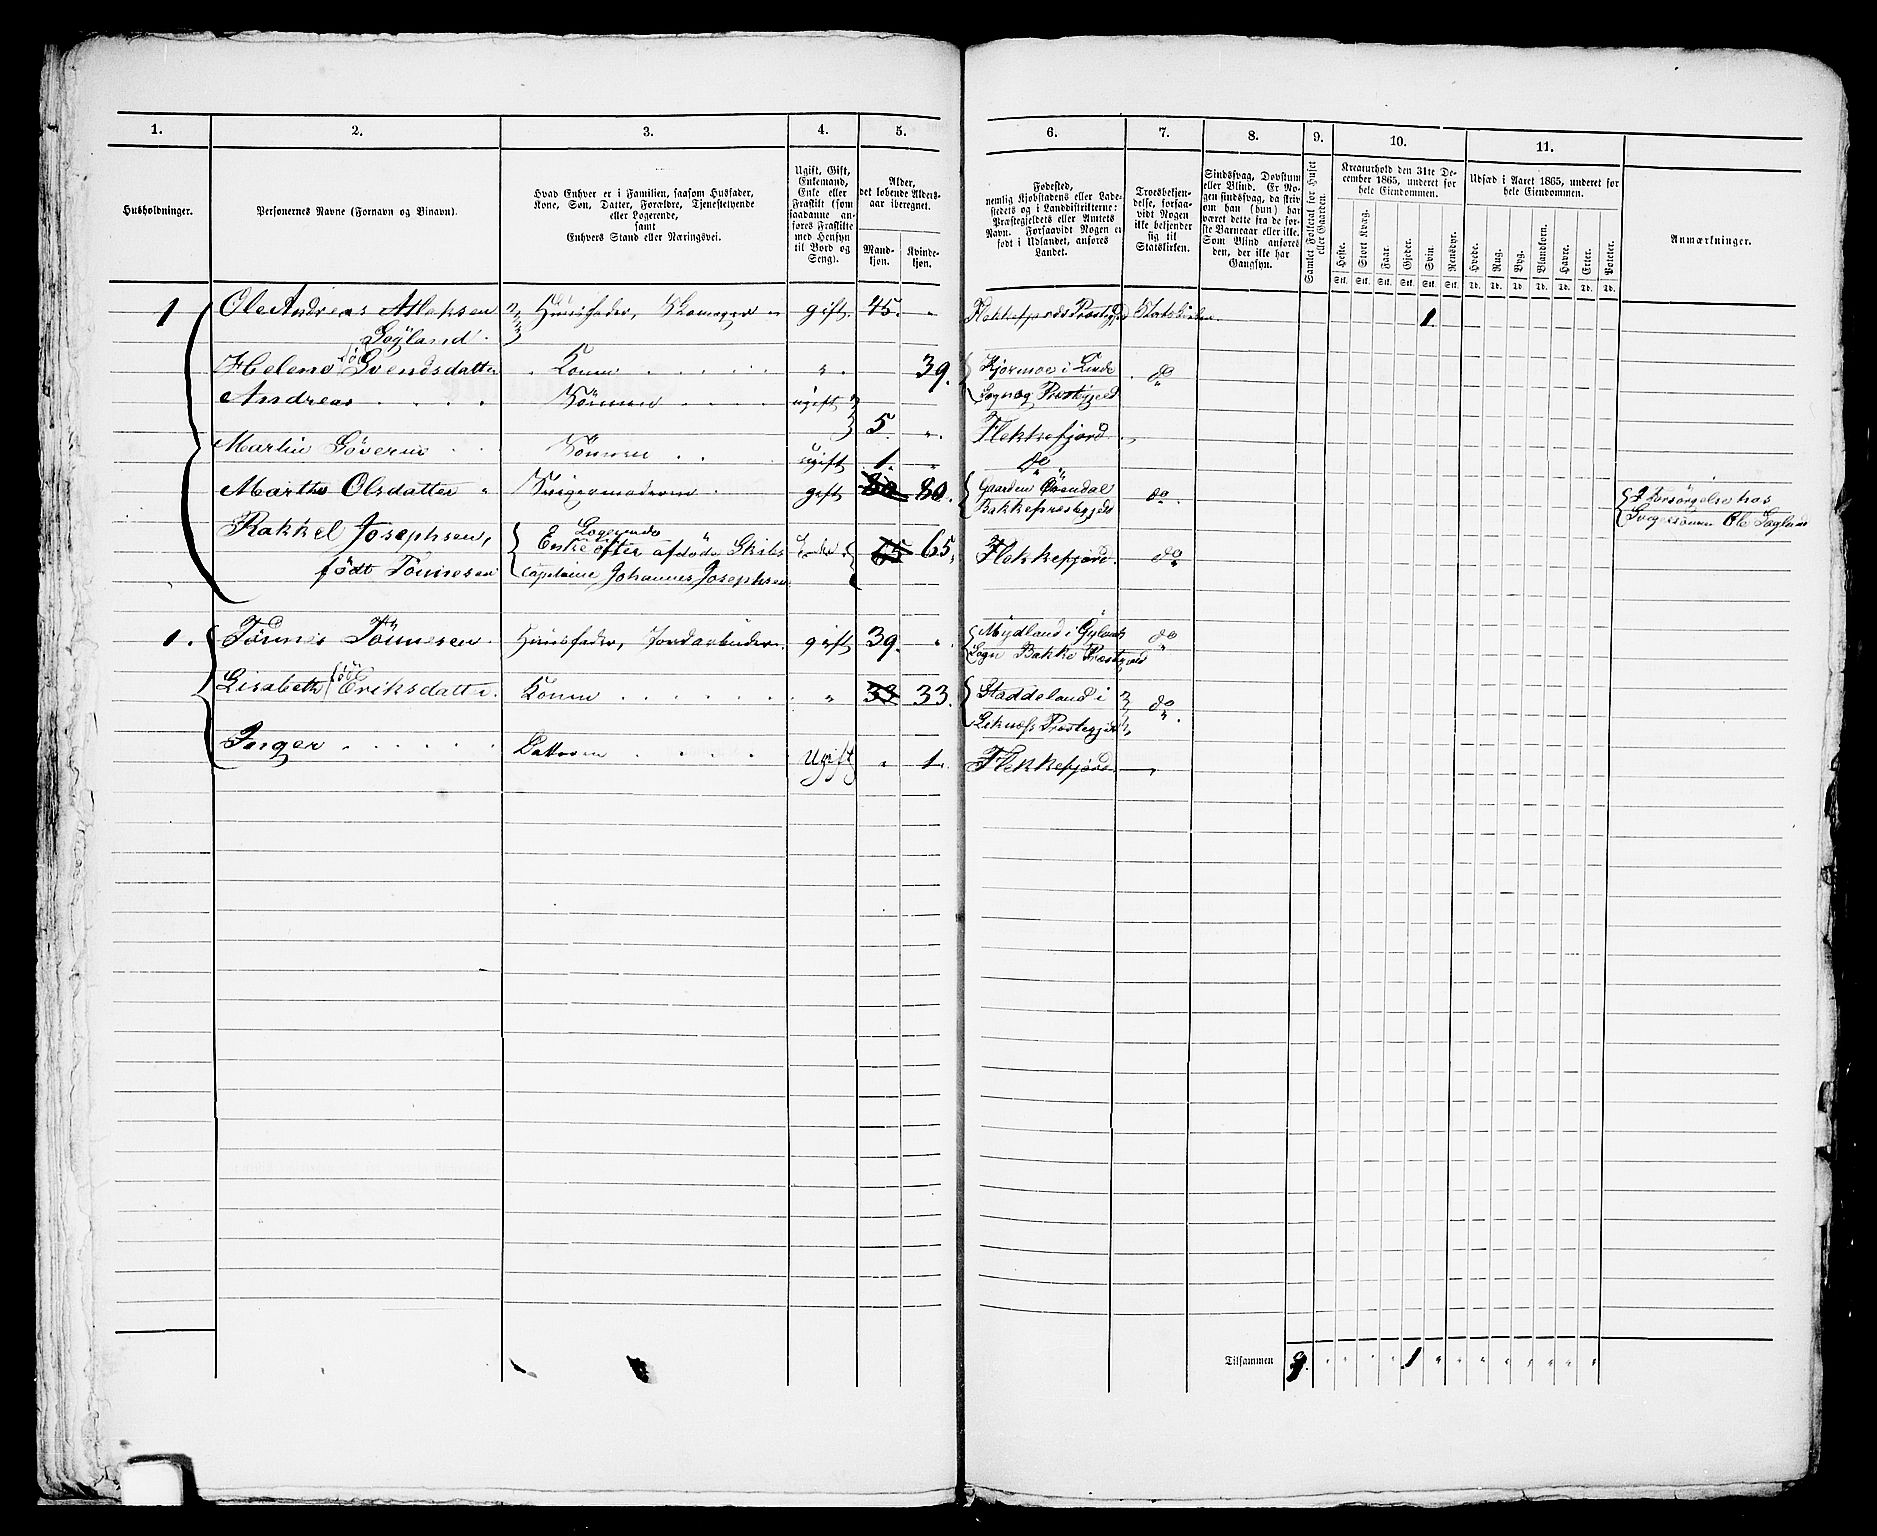 1. 2. 3. 4. 5. 6. 7. 8. 9. 10. 11.
Husholdninger.
Personernes Navne (Fornavn og Binavn).
Hvad Enhver er i Familien, saasom Husfader,
Kone, Søn, Datter, Forældre, Tjenestetyende
eller Logerende,
samt
Enhvers Stand eller Næringsvei.
Ugift, Gift,
Enkemand,
Enke eller
Fraskilt (som
saadanne an-
føres Fraskilte
med Hensyn
til Bord og
Seng).
Alder,
det løbende Alders-
aar iberegnet.
Mand-
kjøn.
Kvinde-
kjøn.
Fødested,
nemlig Kjøbstadens eller Lade-
stedets og i Landdistrikterne:
Præstegjeldets eller Amtets
Navn. Forsaavidt Nogen er
født i Udlandet, anføres
Landet.
Troesbekjen-
delse, forsaa-
vidt Nogen
ikke bekjender
sig til
Statskirken.
Sindssvag, Døvstum
eller Blind. Er No-
gen sindssvag, da skriv
om han (hun) har
været dette fra de før-
ste Barneaar eller ikke.
Som Blind anføres
den, der ikke har
Gangsyn.
Samlet Folketal for Huset
eller Gaarden.
Kreaturhold den 31te De-
cember 1865, underet for
hele Eiendommen.
Heste. Stort Kvæg. Faar. Gjeder. Svin. Rensdyr.
Stk. Stk. Stk. Stk. Stk. Stk.
Udsæd i Aaret 1865, underet for
hele Eiendommen.
Hvede. Rug. Byg. Blandkorn. Havre. Erter. Poteter.
Td. Td. Td. Td. Td. Td. Td.
Anmærkninger.
1 Ole Andreas Atlaksen Huusfader, Skomager gift. 45. " Flekkefjords Præstegjed Statskirken. 1
Søyland.
Helene född Svendsdatter Konen " 39. Kjørmoe i Linde do
Andreas Sönnen ugift Sogn og Præstegjeld
5. " Flekkefjord.
Martin Söveren Sönnen ugift 1. " do
Marthe Olsdatter Svigermoderen gift 80 80. Gaarden Öxendal do. I Forsørgelse hos
Bakke præstegjeld Svigersönnen Ole Søyland
Rakkel Josephsen, Logerende
Enke efter afdöde Skibs Enke 65 65. Flekkefjord. do
født Tönnesen Capitaine Johannes Josephsen
1. Tönnes Tönnesen Huusfader, Jordarbeider gift 39. " Mydland i Gyland do
Sogn Bakke Præstgjeld
Lisabeth född Eriksdatter Konen " 33 33. Staddeland i do
Leknæss Præstegjeld
Inger Datteren Ugift " 1. Flekkefjord
Tilsammen 9. " " " " 1 " " " " " " " "